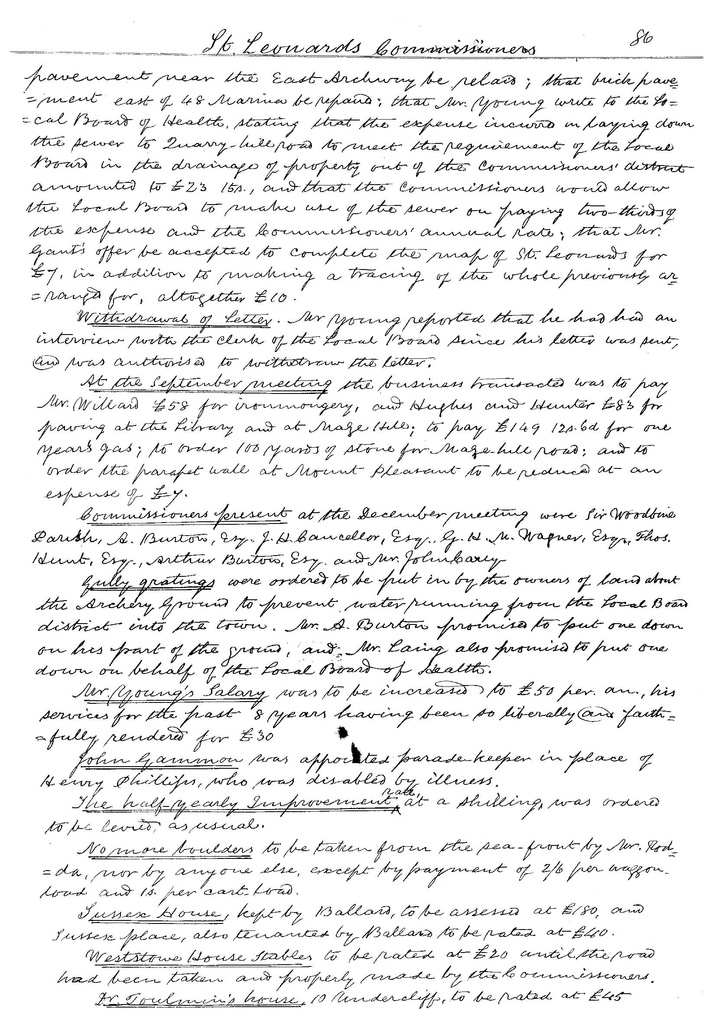 St. Leonards Commissioners 86
pavement near the East Archway be relaid; that brick pave=
=ment east of 48 Marina be repaird; that Mr. Young write to the Lo=
=cal Board of Health, stating that the expense incurred in laying down
the sewer to Quarry-hill road to meet the requirement of the Local
Board in the drainage of property out of the Commissioners' district
amounted to £23 15s., and that the Commissioners would allow
the Local Board to make use of the sewer on paying two-thirds of
the expense and the Commissioners' annual rate; that Mr.
Gant's offer be accepted to complete the map of St. Leonards for
£7, in addition to making a tracing of the whole previously ar=
=ranged for, altogether £10.
Withdrawal of Letter. Mr Young reported that he had had an
interview with the clerk of the Local Board since his letter was sent,
and was authorised to withdraw the letter.
At the September meeting the business transacted was to pay
Mr. Willard £58 for ironmongery, and Hughes and Hunter £83 for
paving at the Library and at Maze Hill; to pay £149 12s. 6d for one
year's gas; to order 100 yards of stone for Maze-hill road; and to
order the parapet wall at Mount Pleasant to be reduced at an
expense of £7.
Commissioners present at the December meeting were Sir Woodbine
Parish, A. Burton, Esq. J. H. Cancellor, Esq., G. H. M. Wagner, Esq., Thos.
Hunt, Esq., Arthur Burton, Esq. and Mr. John Carey
Gully gratings were ordered to be put in by the owners of land about
the Archery Ground to prevent water running from the Local Board
district into the town. Mr. A. Burton promised to put one down
on his part of the ground, and Mr. Laing also promised to put one
down on behalf of the Local Board of Health.
Mr. Young's Salary was to be increased to £50 per. an., his
services for the past 8 years having been so liberally and faith=
=fully rendered for £30
John Gammon was appointed parade-keeper in place of
Henry Phillips, who was disabled by illness.
The half-yearly Improvement rate, at a shilling, was ordered
to be levied, as usual.
No more boulders to be taken from the sea-front by Mr. Rod=
=da, nor by anyone else, except by payment of 2/6 per waggon-
load and 1s. per cart-load.
Sussex House, kept by Ballard, to be assessed at £180, and
Sussex place, also tenanted by Ballard to be rated at £40.
Weststone House Stables to be rated at £20 until the road
had been taken and properly made by the Commissioners.
Dr. Toulmin's house, 10 Undercliff, to be rated at £45